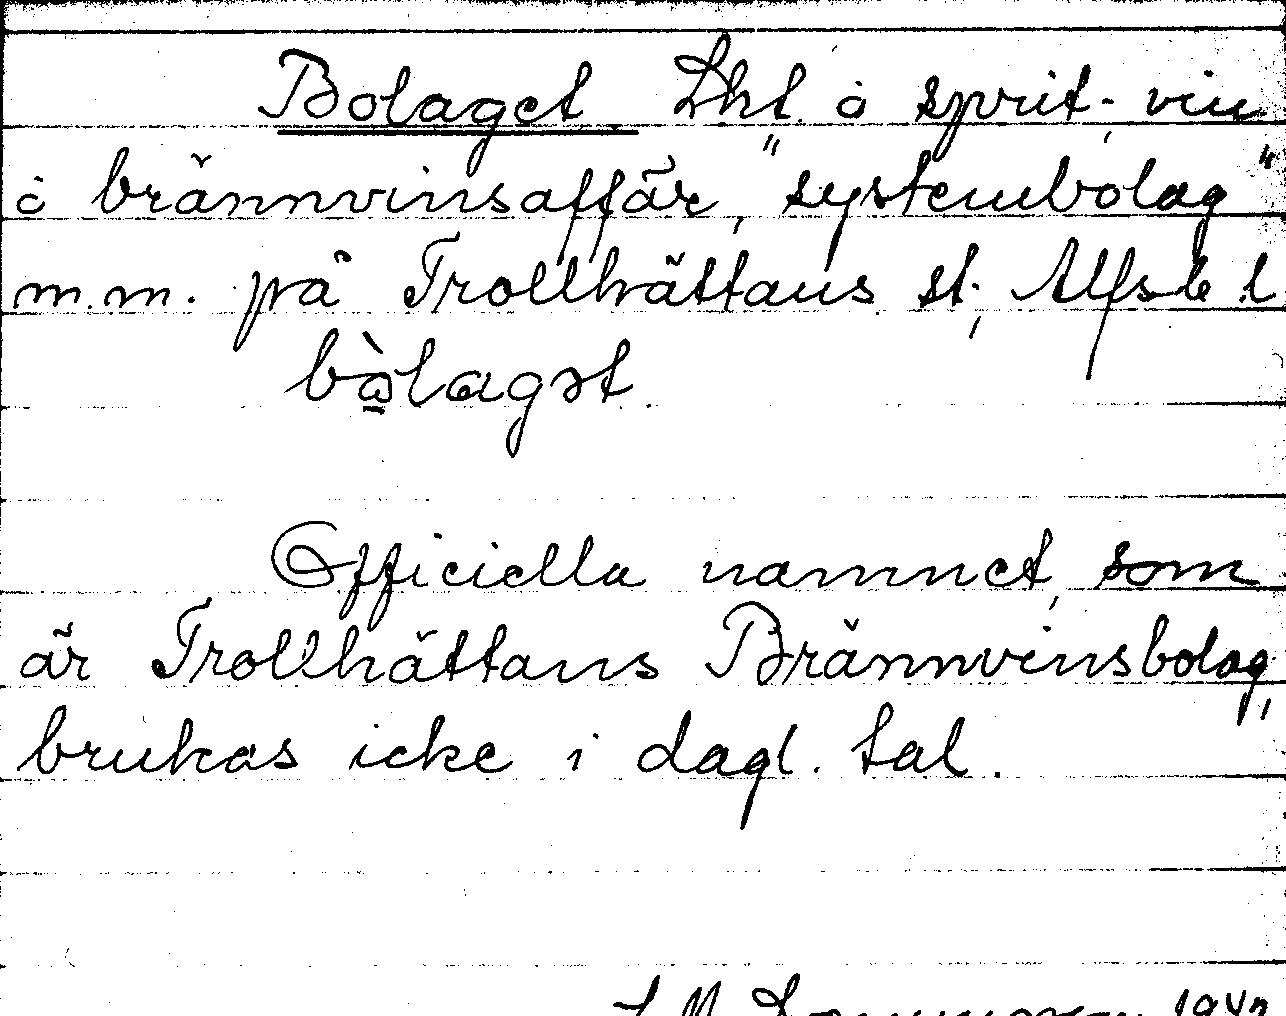 Bolaget. Lht. å sprit-, vin
å brännvinsaffär, "systembolag"
m.m. på Trollhättans st.,
bòlagət.
Officiella namnet, som
är Trollhättans Brännvinsbolag,
brukas icke i dagl. tal.